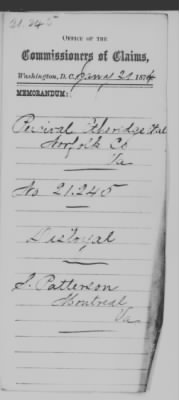 21.245
OFFICE OF THE
Commissioners of Claims,
Washington, D.C. Jany 21 1874
MEMORANDUM:
Percival Etheridge
Norfolk Co
Va
No 21.245
Disloyal
S. Patterson
Montreal
Va